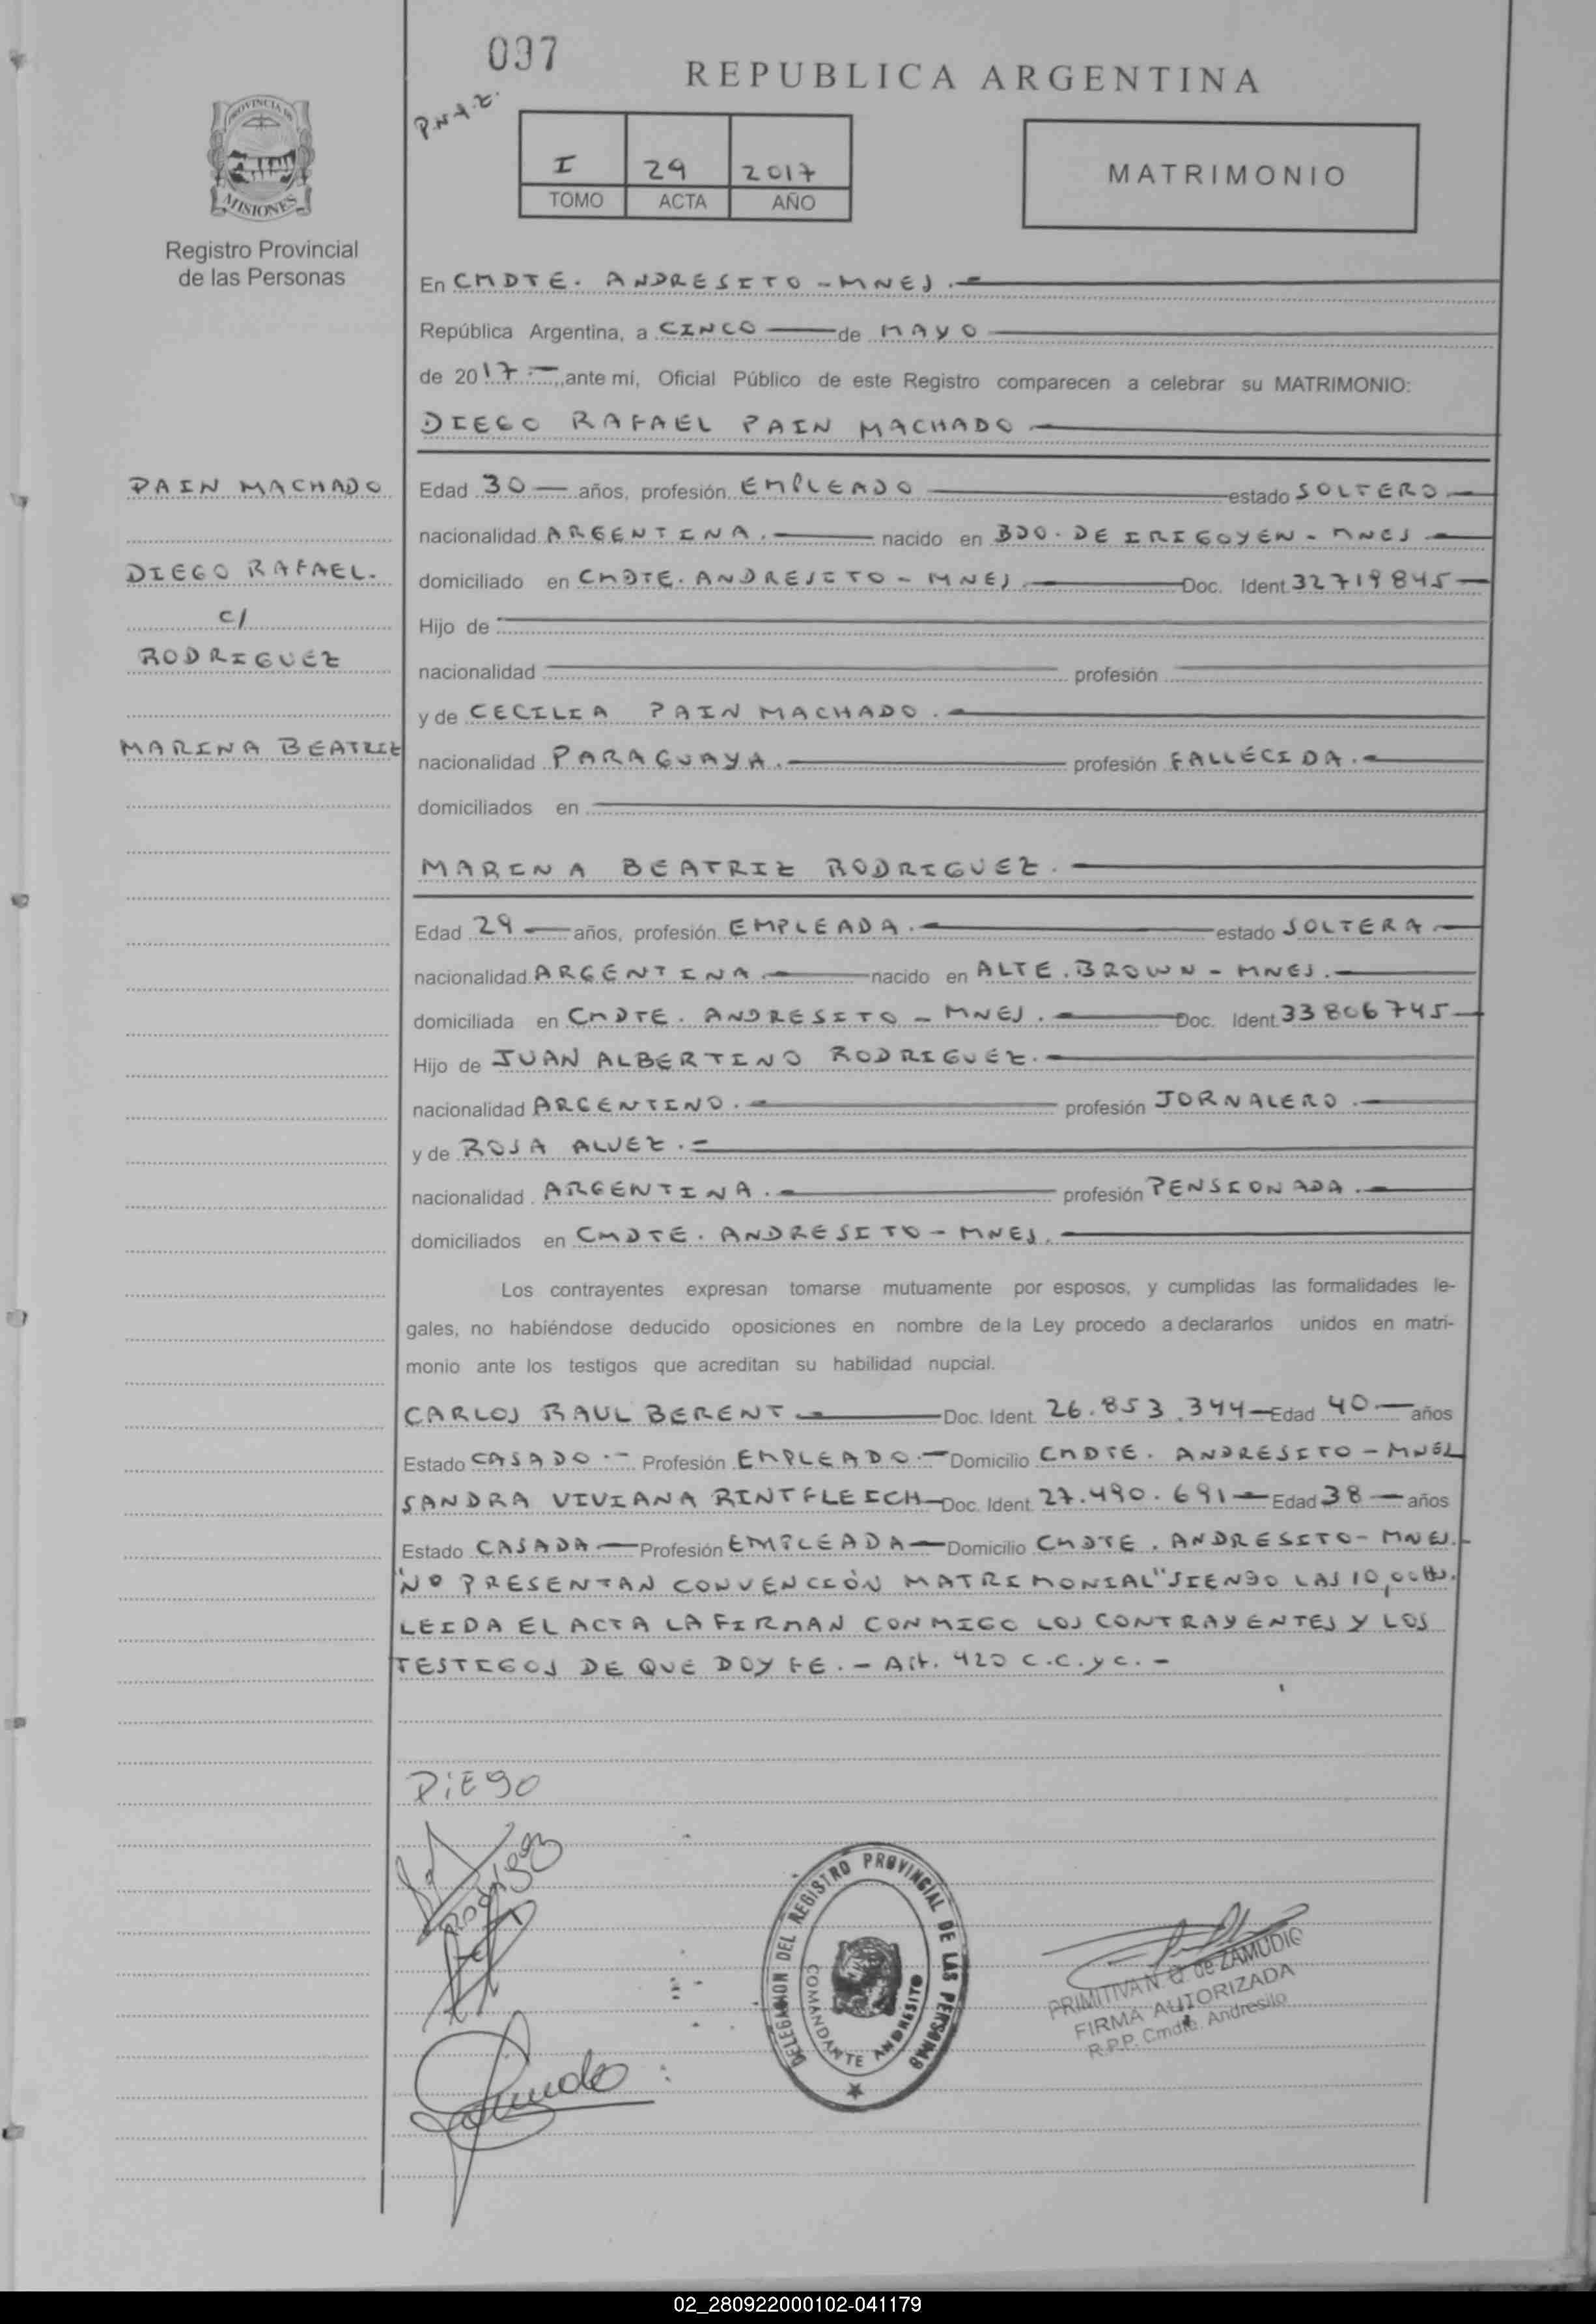 097
REPUBLICA ARGENTINA
P.N.A.Z.
I 29 2017
TOMO ACTA AÑO
MATRIMONIO
PROVINCIA DE
MISIONES
Registro Provincial
de las Personas
En CMDTE. ANDRESITO - MNES.
República Argentina, a CINCO de MAYO
de 2017.-, ante mí, Oficial Público de este Registro comparecen a celebrar su MATRIMONIO:
DIEGO RAFAEL PAIN MACHADO
PAIN MACHADO
DIEGO RAFAEL.
c/
RODRIGUEZ
MARINA BEATRIZ
Edad 30 años, profesión EMPLEADO estado SOLTERO
nacionalidad ARGENTINA. nacido en BDO. DE IRIGOYEN - MNES
domiciliado en CMDTE. ANDRESITO - MNES Doc. Ident. 32719845
Hijo de
nacionalidad profesión
y de CECILIA PAIN MACHADO.
nacionalidad PARAGUAYA. profesión FALLECIDA.
domiciliados en
MARINA BEATRIZ RODRIGUEZ.
Edad 29 años, profesión EMPLEADA. estado SOLTERA
nacionalidad ARGENTINA. nacido en ALTE. BROWN - MNES.
domiciliada en CMDTE. ANDRESITO - MNES. Doc. Ident. 33806745
Hijo de JUAN ALBERTINO RODRIGUEZ.
nacionalidad ARGENTINO. profesión JORNALERO.
y de ROSA ALVEZ.
nacionalidad ARGENTINA. profesión PENSIONADA.
domiciliados en CMDTE. ANDRESITO - MNES.
Los contrayentes expresan tomarse mutuamente por esposos, y cumplidas las formalidades le-
gales, no habiéndose deducido oposiciones en nombre de la Ley procedo a declararlos unidos en matri-
monio ante los testigos que acreditan su habilidad nupcial.
CARLOS RAUL BERENT Doc. Ident. 26.853.344 Edad 40 años
Estado CASADO.- Profesión EMPLEADO.- Domicilio CMDTE. ANDRESITO - MNES
SANDRA VIVIANA RINTFLEICH Doc. Ident. 27.490.691 Edad 38 años
Estado CASADA Profesión EMPLEADA Domicilio CMDTE. ANDRESITO - MNES.
"NO PRESENTAN CONVENCIÓN MATRIMONIAL" SIENDO LAS 10,00 Hs.
LEIDA EL ACTA LA FIRMAN CONMIGO LOS CONTRAYENTES Y LOS
TESTIGOS DE QUE DOY FE. - Art. 420 C.C.y C. -
DiEgo
DELEGACION DEL REGISTRO PROVINCIAL DE LAS PERSONAS
COMANDANTE ANDRESITO
PRIMITIVA N. Q. de ZAMUDIO
FIRMA AUTORIZADA
R.P.P. Cmdte. Andresito
02_280922000102-041179